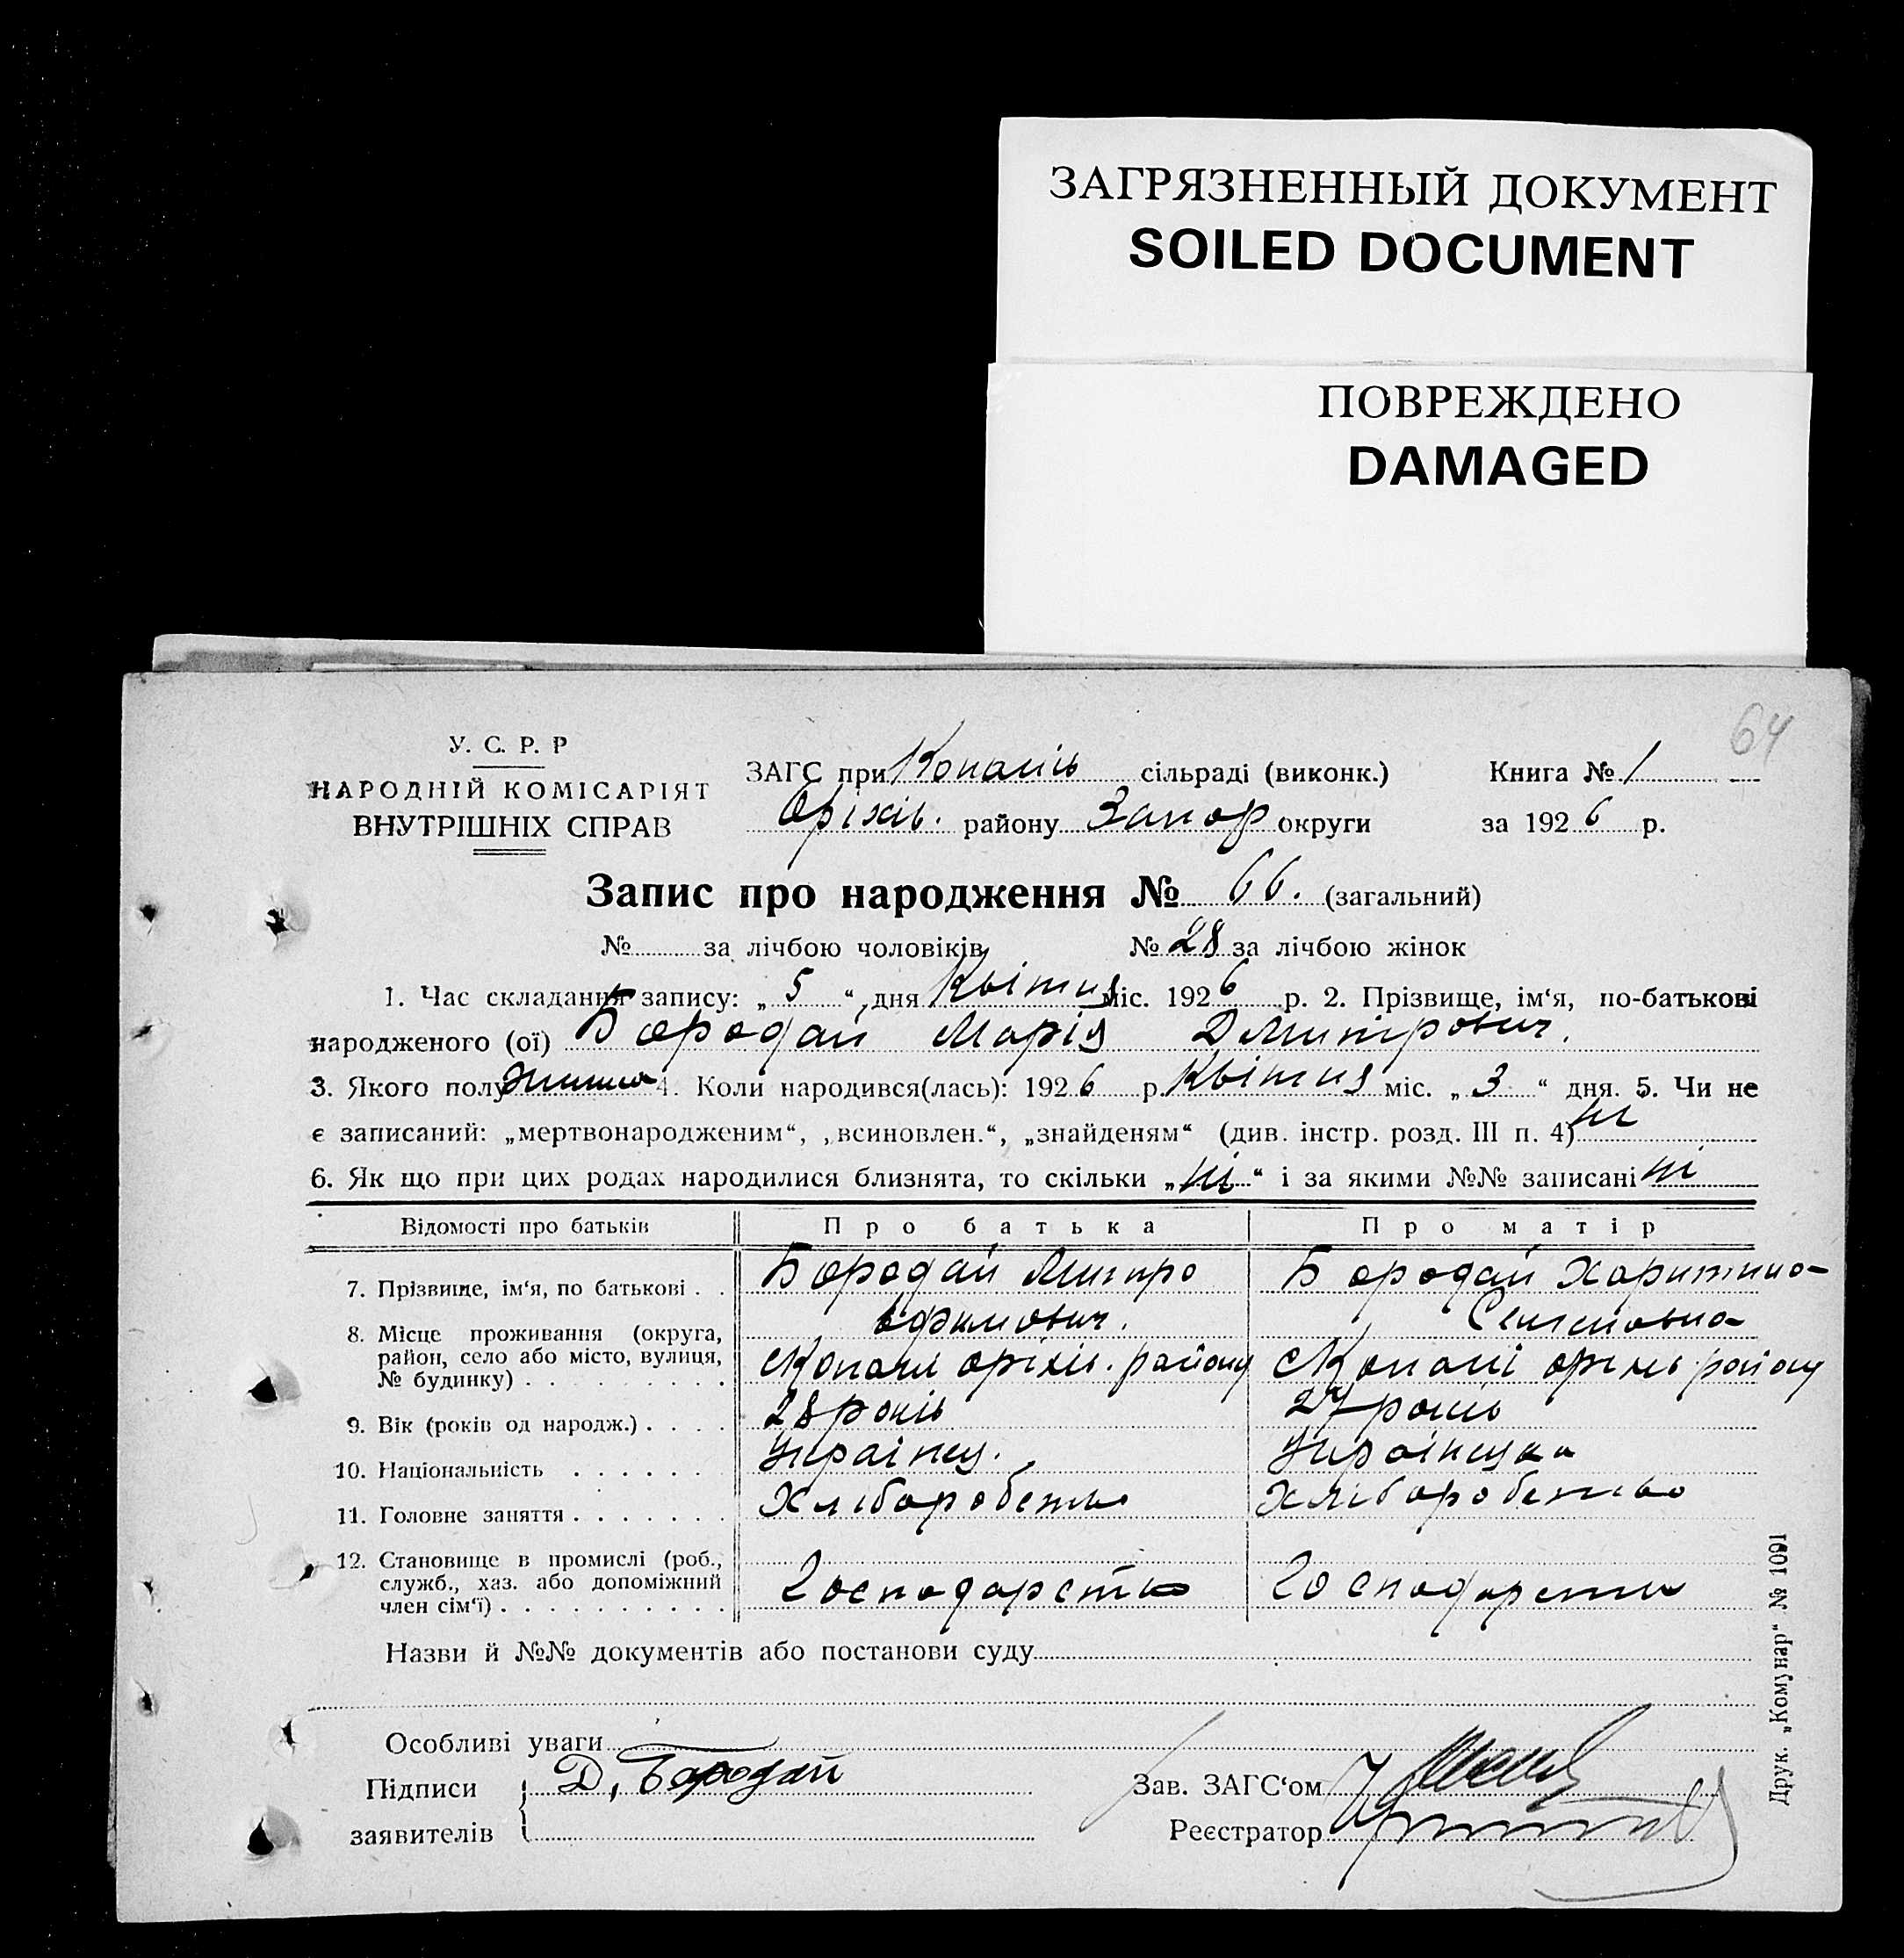 ЗАГРЯЗНЕННЫЙ ДОКУМЕНТ
SOILED DOCUMENT
ПОВРЕЖДЕНО
DAMAGED
64
У. С. Р. Р
НАРОДНІЙ КОМІСАРІЯТ
ВНУТРІШНІХ СПРАВ
ЗАГС при Копанів сільраді (виконк.) Книга № 1
Оріхів. району Запор округи за 1926 р.
Запис про народження № 66. (загальний)
№ за лічбою чоловіків № 28 за лічбою жінок
1. Час складання запису: „ 5 “ дня Квітня міс. 1926 р. 2. Прізвище, ім‘я, по-батькові
народженого (ої) Бородай Марія Дмитрович.
3. Якого полу 4. Коли народився(лась): 1926 р. Квітня міс. „ 3 “ дня. 5. Чи не
є записаний: „мертвонародженим“, „всиновлен.“, „знайденям“ (див. інстр. розд. III п. 4) ні
6. Як що при цих родах народилися близнята, то скільки „ ні “ і за якими №№ записані ні
Відомості про батьків Про батька Про матір
7. Прізвище, ім‘я, по батькові . . Бородай Митро Бородай Харитина
Єфимович.
8. Місце проживання (округа,
район, село або місто, вулиця,
№ будинку) . . . . . . . . . Копані оріхів. району Копані оріхів району
9. Вік (років од народж.) . . . . 28 років 27 років
10. Національність . . . . . . Українец. Українцка
11. Головне заняття . . . . . . . Хліборобство Хліборобство
12. Становище в промислі (роб.,
служб., хаз. або допоміжний
член сім‘ї) . . . . . . . . . . Господарство Господарство
Назви й №№ документів або постанови суду
Особливі уваги
Підписи Д, Бородай Зав. ЗАГС‘ом
заявителів Реєстратор
Друк. „Комунар“ № 1091